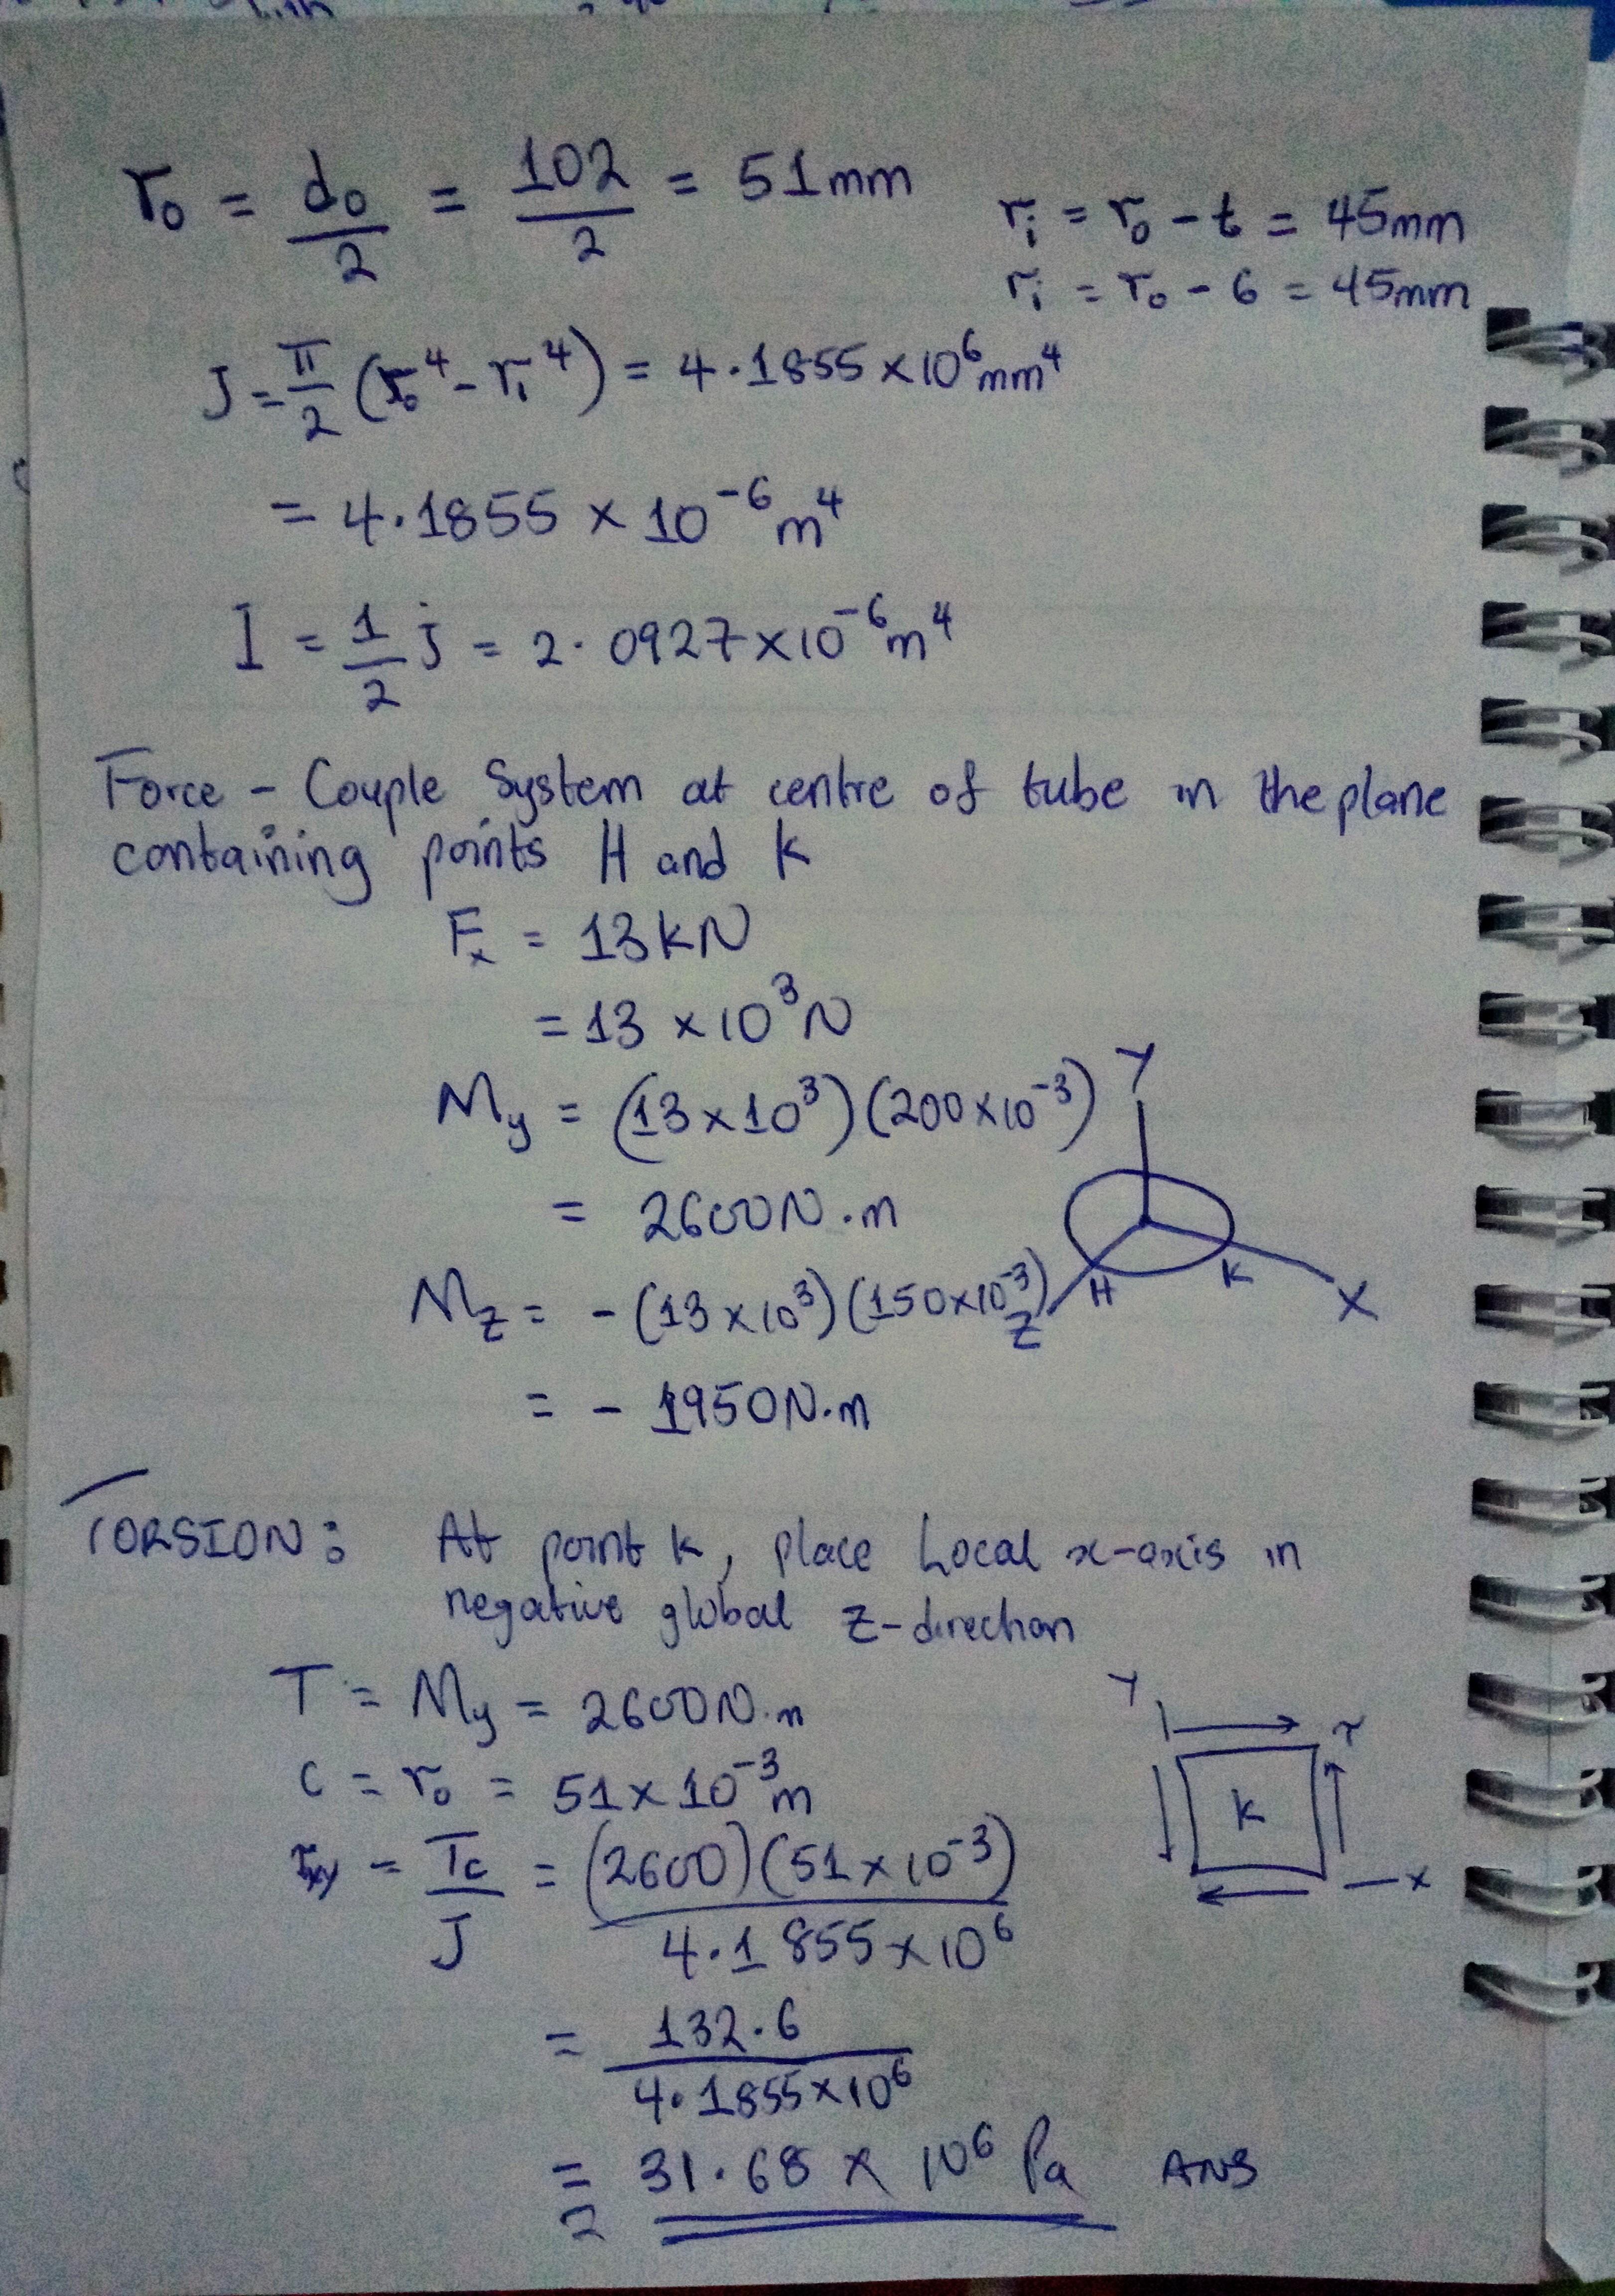 r₀ = d₀/2 = 102/2 = 51mm
rᵢ = r₀ - t = 45mm
rᵢ = r₀ - 6 = 45mm
J = π/2 (r₀⁴ - rᵢ⁴) = 4.1855 x 10⁶ mm⁴
= 4.1855 x 10⁻⁶ m⁴
I = 1/2 j = 2.0927 x 10⁻⁶ m⁴
Force - Couple System at centre of tube in the plane
containing points H and K
Fₓ = 13kN
= 13 x 10³ N
My = (13 x 10³)(200 x 10⁻³)
= 2600N.m
Mz = -(13 x 10³)(150 x 10⁻³)
= - 1950N.m
Y
H K
Z X
TORSION: At point k, place Local x-axis in
negative global z-direction
T = My = 2600N.m
c = r₀ = 51 x 10⁻³ m
τxy = Tc/J = (2600)(51 x 10⁻³)/4.1855 x 10⁶
= 132.6/4.1855 x 10⁶
= 31.68 x 10⁶ Pa ANS
Y
τ
K
x